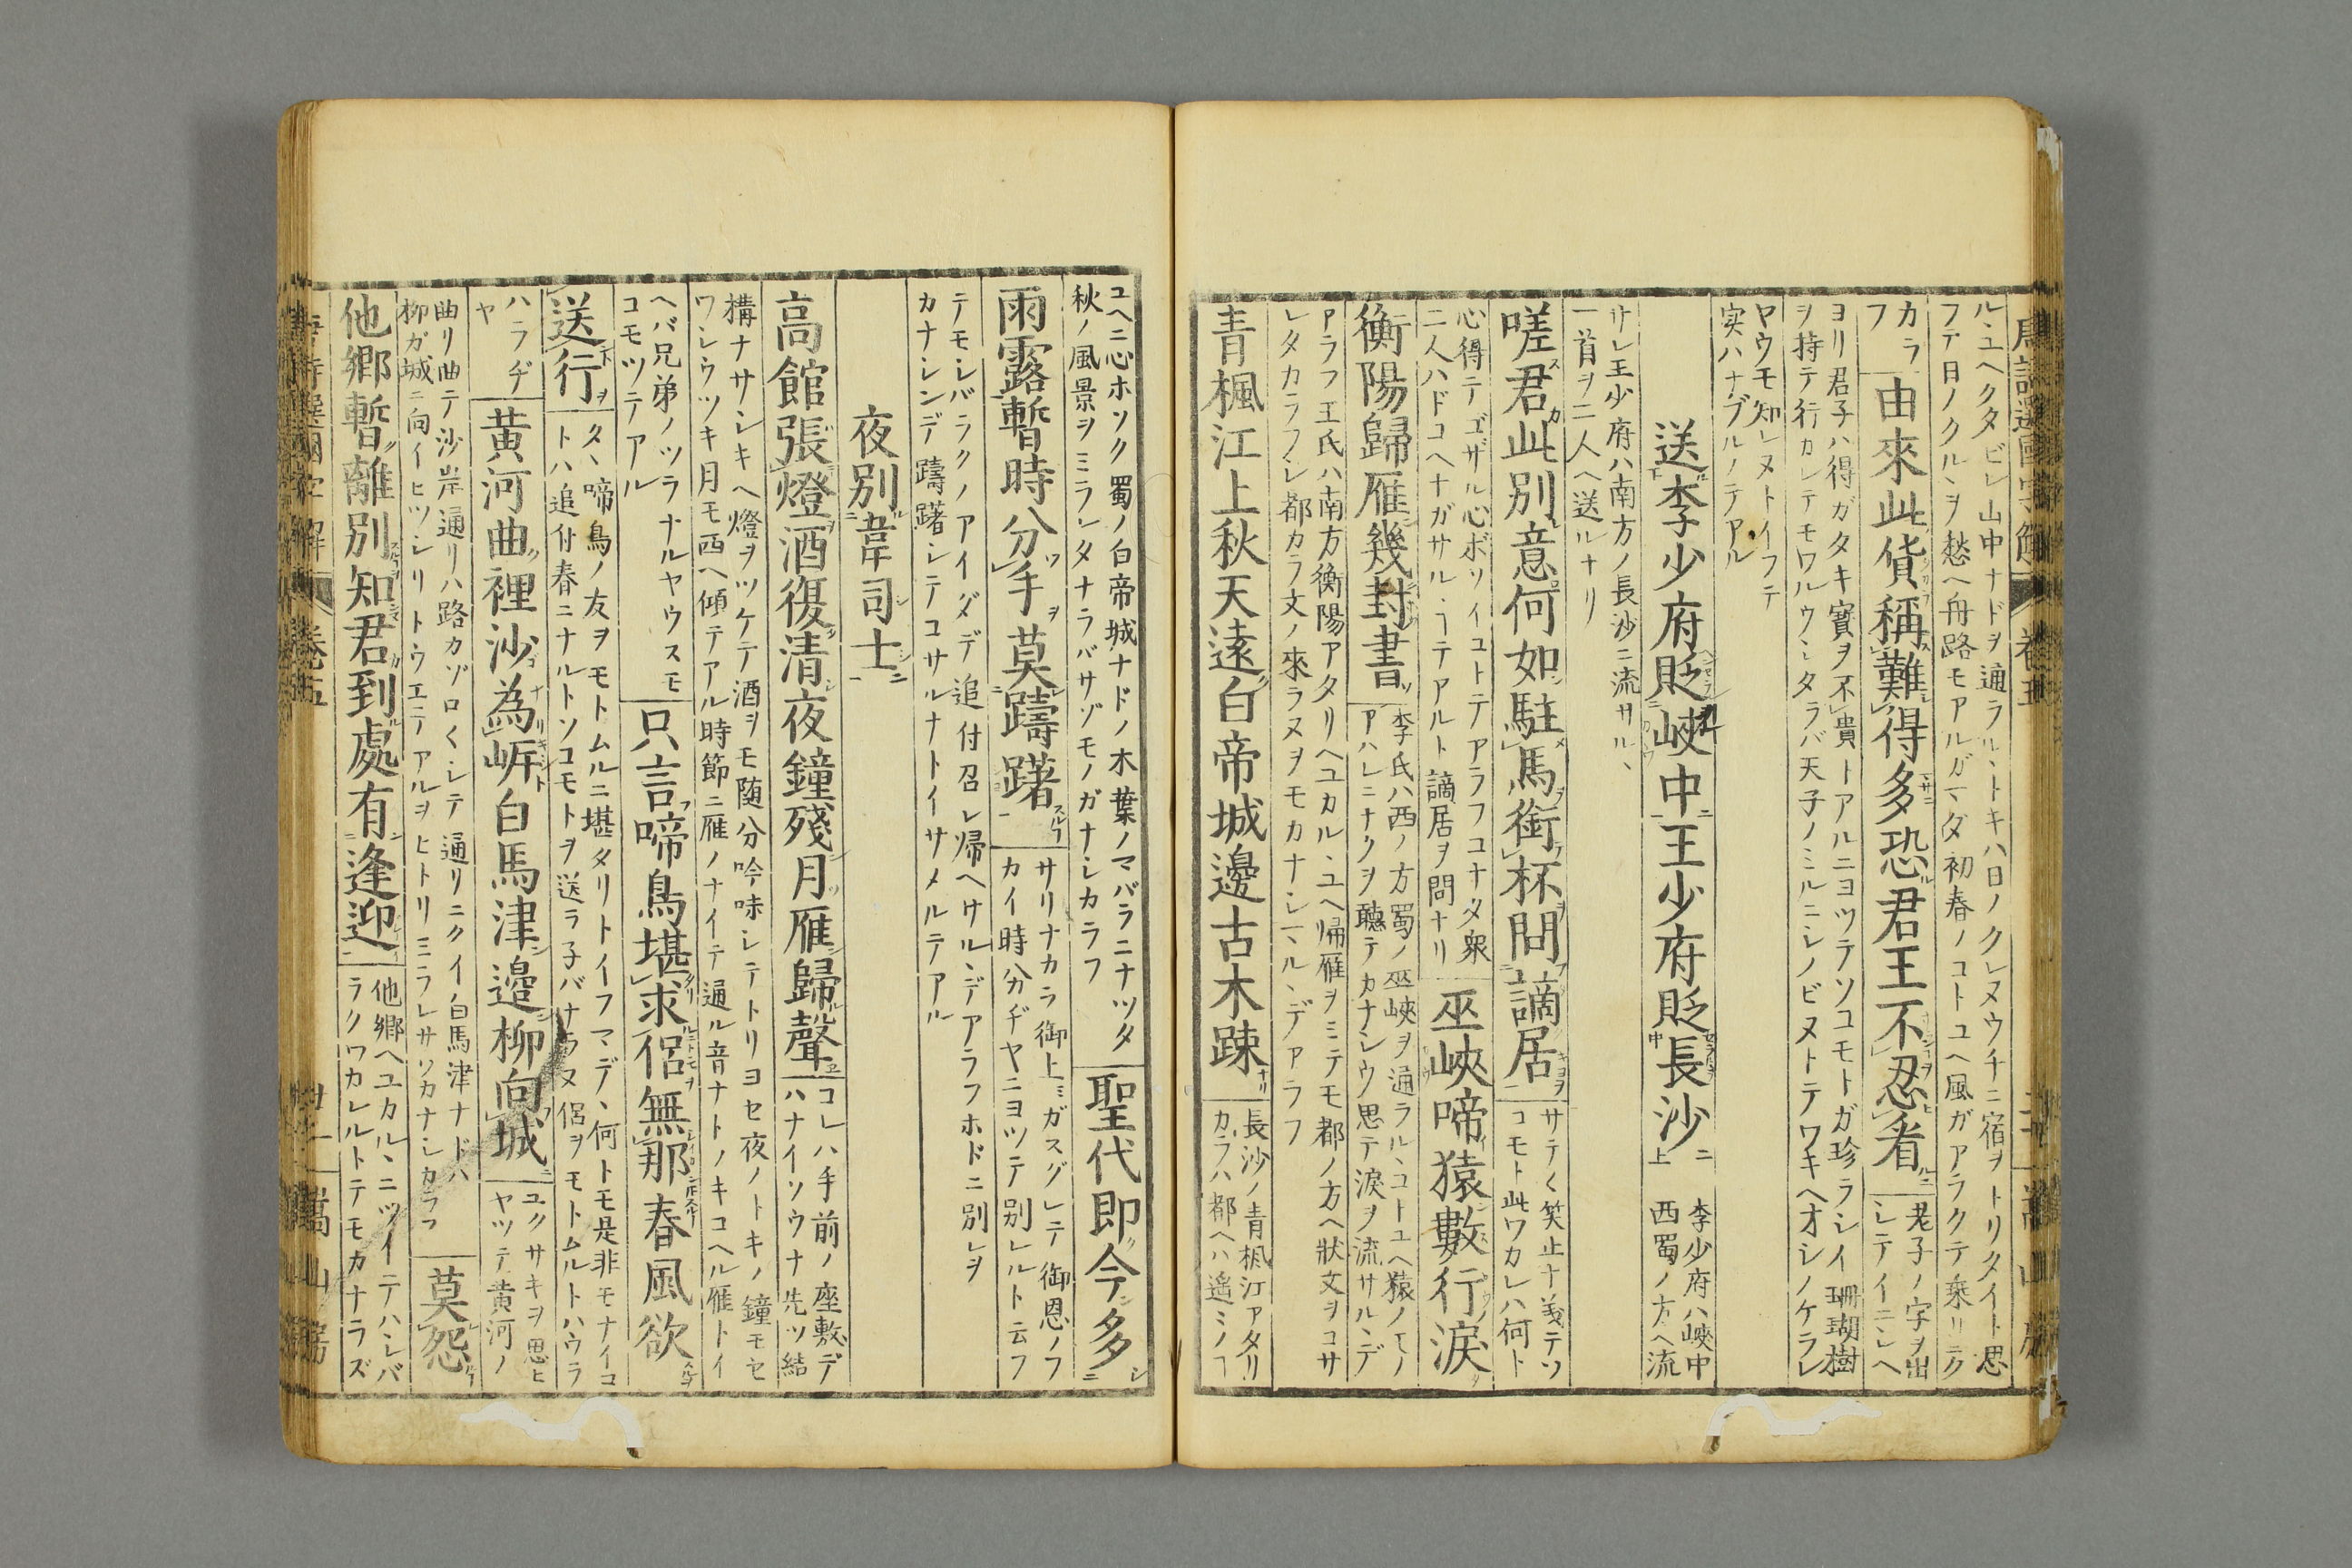 唐詩選國字解 卷五
嵩山房
ルユヘクタビレ山中ナドヲ通ラルヽトキハ日ノクレヌウチニ宿ヲトリタイト思
フテ日ノクルヽヲ愁ヘ舟路モアルガマダ初春ノコトユヘ風ガアラクテ乘リニク
カラフ
由來此貨稱難得多恐君王不忍看
老子ノ字ヲ出シテイニシヘ
ヨリ君子ハ得ガタキ寳ヲ不貴トアルニヨツテソコモトガ珍ラシイ珊瑚樹
ヲ持テ行カレテモワルウシタラバ天子ノミルニシノビヌトテワキヘオシノケラレ
ヤウモ知レヌトイフテ
実ハナブルノテアル
送李少府貶峽中王少府貶長沙
李少府ハ峽中
西蜀ノ方ヘ流
サレ王少府ハ南方ノ長沙ニ流サルヽ
一首ヲ二人ヘ送ルナリ
嗟君此別意何如駐馬銜杯問謫居
サテく笑止ナ義テソ
コモト此ワカレハ何ト
心得テゴザル心ボソイコトテアラフコナタ衆
二人ハドコヘナガサルヽコテアルト謫居ヲ問ナリ
巫峽啼猿數行淚
衡陽歸雁幾封書
李氏ハ西ノ方蜀ノ巫峽ヲ通ラルヽコトユヘ猿ノモノ
アハレニナクヲ聽テカナシウ思テ淚ヲ流サルヽデ
アラフ王氏ハ南方衡陽アタリヘユカルヽユヘ帰雁ヲミテモ都ノ方ヘ狀文ヲコサ
レタカラフシ都カラ文ノ來ラヌヲモカナシマルヽデアラフ
青楓江上秋天遠白帝城邊古木疎
長沙ノ青楓江アタリ
カラハ都ヘハ遙ミノコ
ユヘニ心ホソク蜀ノ白帝城ナドノ木葉ノマバラニナツタ
秋ノ風景ヲミラレタナラバサゾモノガナシカラフ
聖代即今多
雨露暫時分手莫躊躇
サリナカラ御上ミガスグレテ御恩ノフ
カイ時分ヂヤニヨツテ別レルト云フ
テモシバラクノアイダデ追付召レ帰ヘサルヽデアラフホドニ別レヲ
カナシンデ躊躇シテコサルナトイサメルテアル
夜別韋司士
高館張燈酒復清夜鐘殘月雁歸聲
コレハ手前ノ座敷デ
ハナイソウナ先ツ結
構ナサシキヘ燈ヲツケテ酒ヲモ随分吟味シテトリヨセ夜ノトキノ鐘モセ
ワシウツキ月モ西ヘ傾テアル時節ニ雁ノナイテ通ル音ナトノキコヘル雁トイ
ヘバ兄弟ノツラナルヤウスモ
コモツテアル
只言啼鳥堪求侶無那春風欲
送行
タヽ啼鳥ノ友ヲモトムルニ堪タリトイフマデヽ何トモ是非モナイコ
トハ追付春ニナルトソコモトヲ送ラ子バナラヌ侶ヲモトムルトハウラ
ハラヂ
ヤ
黄河曲裡沙為岸白馬津邉柳向城
ユクサキヲ思ヒ
ヤツテ黄河ノ
曲リ曲テ沙岸通リハ路カゾロくシテ通リニクイ白馬津ナドハ
柳ガ城ニ向イヒツシリトウエテアルヲヒトリミラレサソカナシカラフ
莫怨
他郷暫離別知君到處有逢迎
他郷ヘユカルヽニツイテハシバ
ラクワカレルトテモカナラズ
唐詩選國字解 卷五
嵩山房